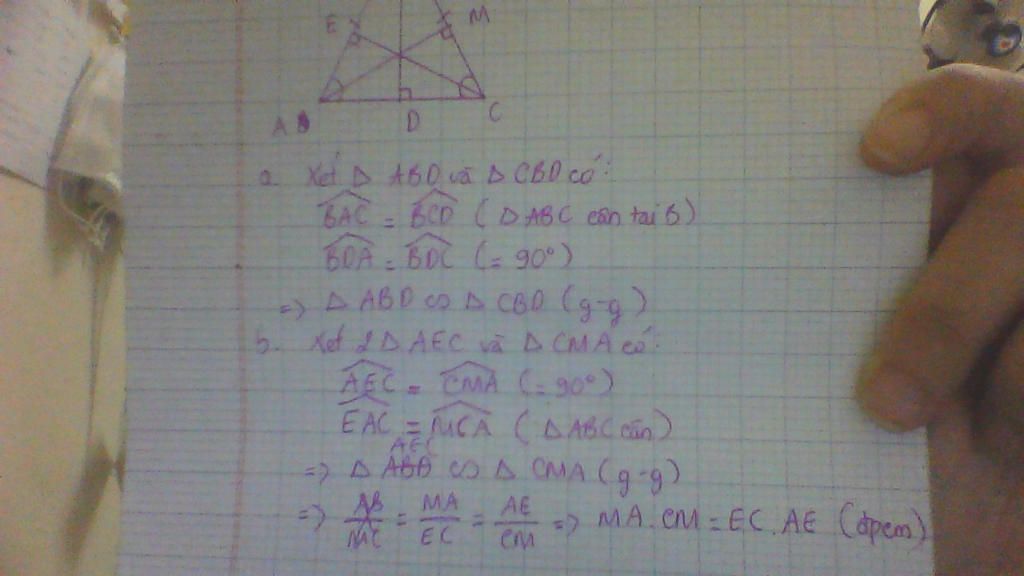 E M
A D C
a. Xét Δ ABD và Δ CBD có:
BAC = BCD (Δ ABC cân tại B)
BDA = BDC (= 90°)
=> Δ ABD ∽ Δ CBD (g-g)
b. Xét 2 Δ AEC và Δ CMA có:
AEC = CMA (= 90°)
EAC = MCA (Δ ABC cân)
=> Δ AEC ∽ Δ CMA (g-g)
=> AB/MC = MA/EC = AE/CM => MA.CM = EC.AE (đpcm)